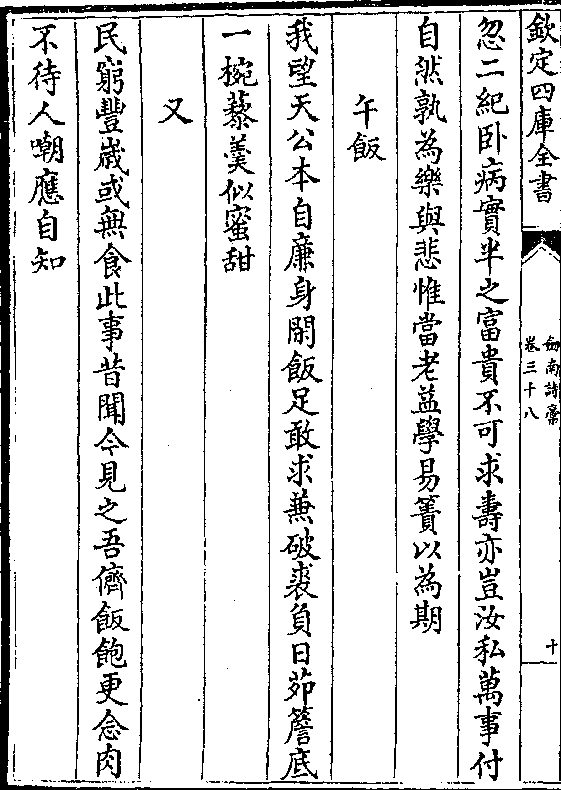 欽定四庫全書
劔南詩藁
卷三十八
十
忽二紀卧病實半之富貴不可求壽亦豈汝私萬事付
自然孰為樂與悲惟當老益學易簀以為期
午飯
我望天公本自廉身閒飯足敢求兼破裘負日茆簷底
一椀藜羹似蜜甜
又
民窮豐歳或無食此事昔聞今見之吾儕飯飽更念肉
不待人嘲應自知